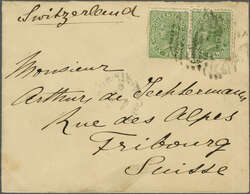 Switzerland
Monsieur
Arthur de Techtermann
Rue des Alpes
Fribourg
Suisse